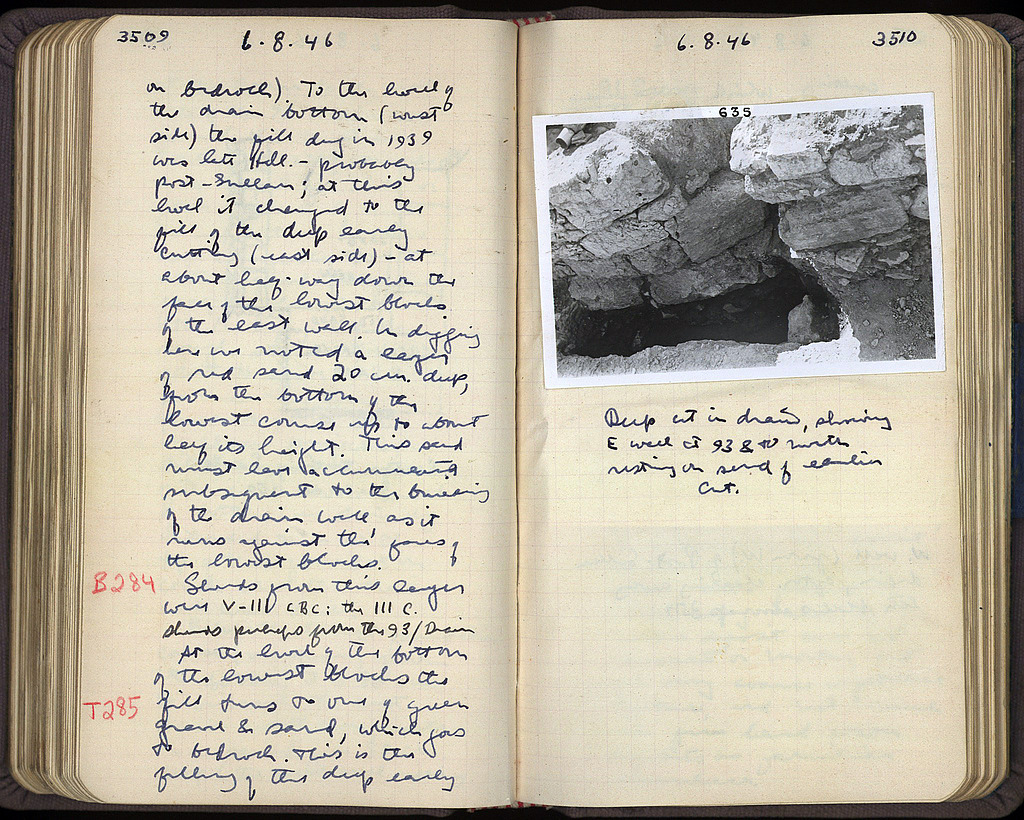 3509
6.8.46
on bedrock). To the level of
the drain bottom (west
side) the fill dug in 1939
was late Hell. - probably
post-Sullan; at this
level it changed to the
fill of the deep early
cutting (east side) - at
about half-way down the
face of the lowest blocks
of the east wall. In digging
here we noted a layer
of red sand 20 cm. deep,
from the bottom of the
lowest course up to about
half its height. This sand
must have accumulated
subsequent to the building
of the drain wall, as it
runs against the faces of
the lowest blocks.
B284
Sherds from this layer
were V-III c BC; the III c.
sherds perhaps from the 93/Drain
At the level of the bottom
of the lowest blocks the
T285
fill turns to one of green
gravel & sand, which goes
to bedrock. This is the
filling of the deep early
6.8.46
3510
635
Deep cut in drain, showing
E wall at 93 & to north
resting on sand of earlier
cut.